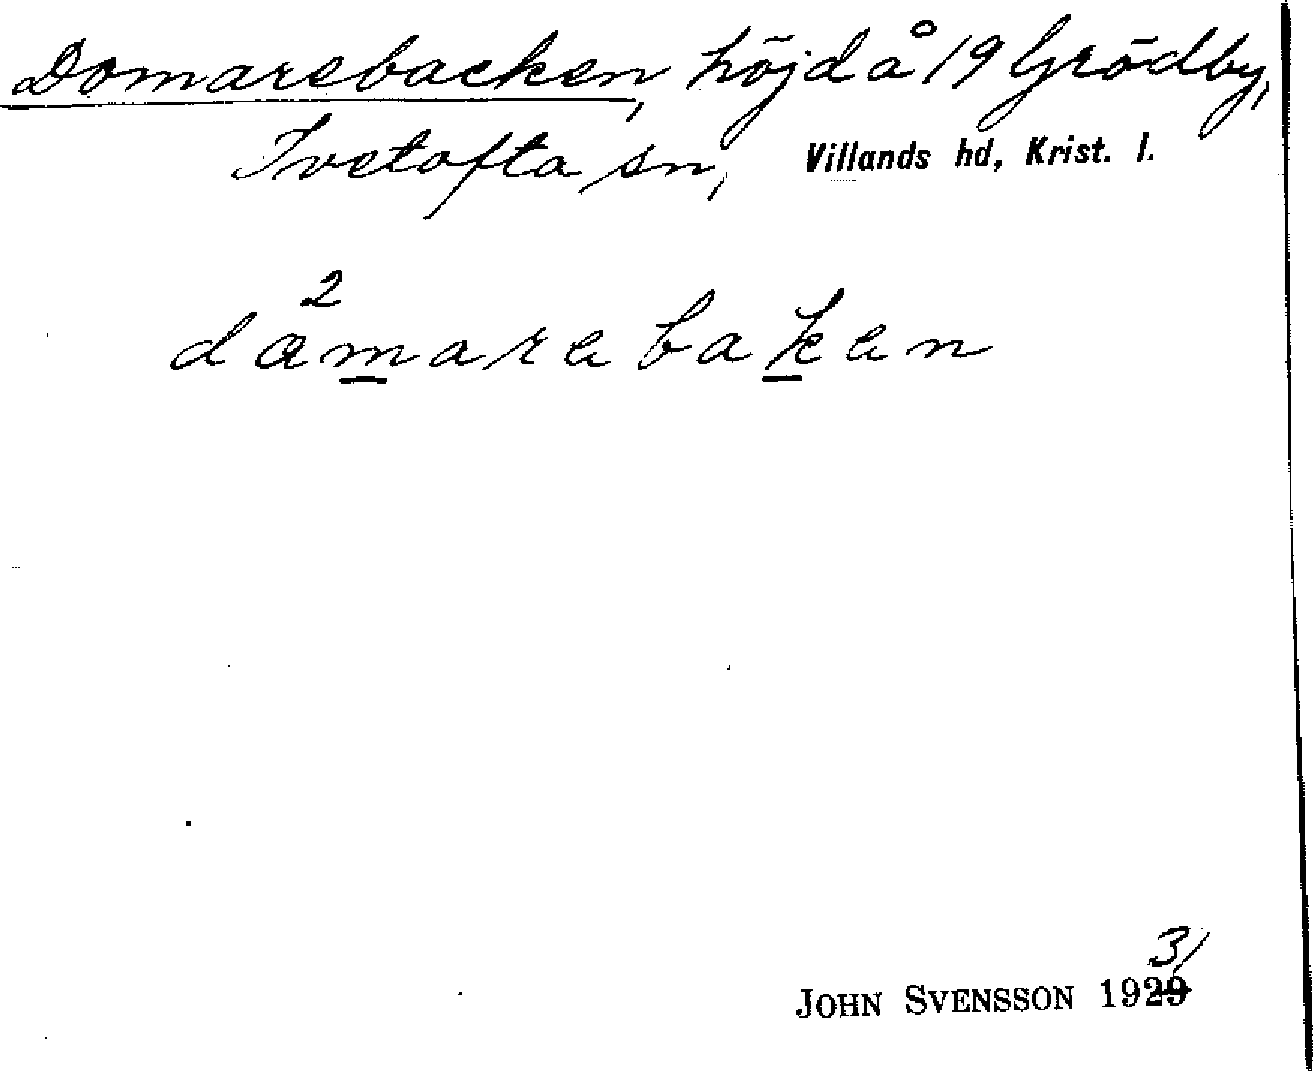 Domarebacken, höjd å 19 Grödby,
Ivetofta sn, Villands hd, Krist. l.
2
damarebaken
31
JOHN SVENSSON 1929